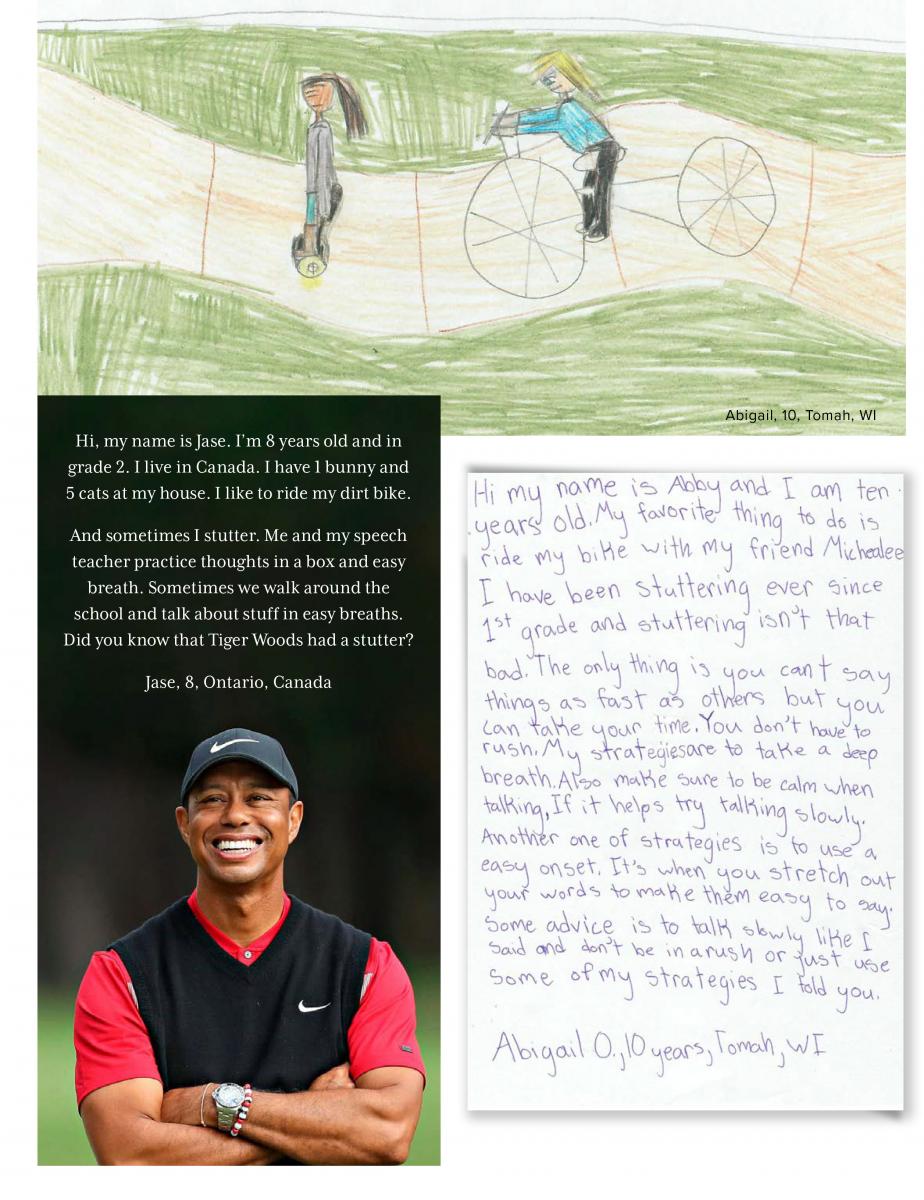 Abigail, 10, Tomah, WI
Hi, my name is Jase. I'm 8 years old and in
grade 2. I live in Canada. I have 1 bunny and
5 cats at my house. I like to ride my dirt bike.
And sometimes I stutter. Me and my speech
teacher practice thoughts in a box and easy
breath. Sometimes we walk around the
school and talk about stuff in easy breaths.
Did you know that Tiger Woods had a stutter?
Jase, 8, Ontario, Canada
Hi my name is Abby and I am ten
years old. My favorite thing to do is
ride my bike with my friend Michealee
I have been stuttering ever since
1st grade and stuttering isn't that
bad. The only thing is you can't say
things as fast as others but you
can take your time. You don't have to
rush. My strategies are to take a deep
breath. Also make sure to be calm when
talking, If it helps try talking slowly.
Another one of strategies is to use a
easy onset. It's when you stretch out
your words to make them easy to say.
Some advice is to talk slowly like I
said and don't be in a rush or just use
some of my strategies I told you.
Abigail O., 10 years, Tomah, WI